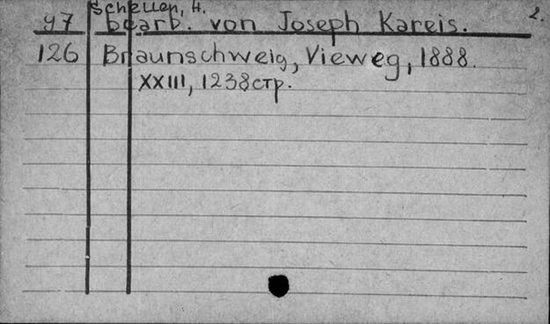 Schellen, H. 2.
У7 bearb. von Joseph Kareis.
126 Braunschweig, Vieweg, 1888.
XXIII, 1238стр.